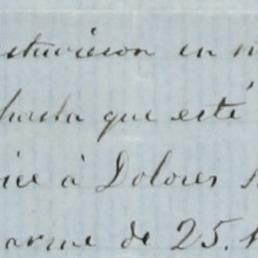 estuvieron en
hasta que esté
dice à Dolores
arme de 25.